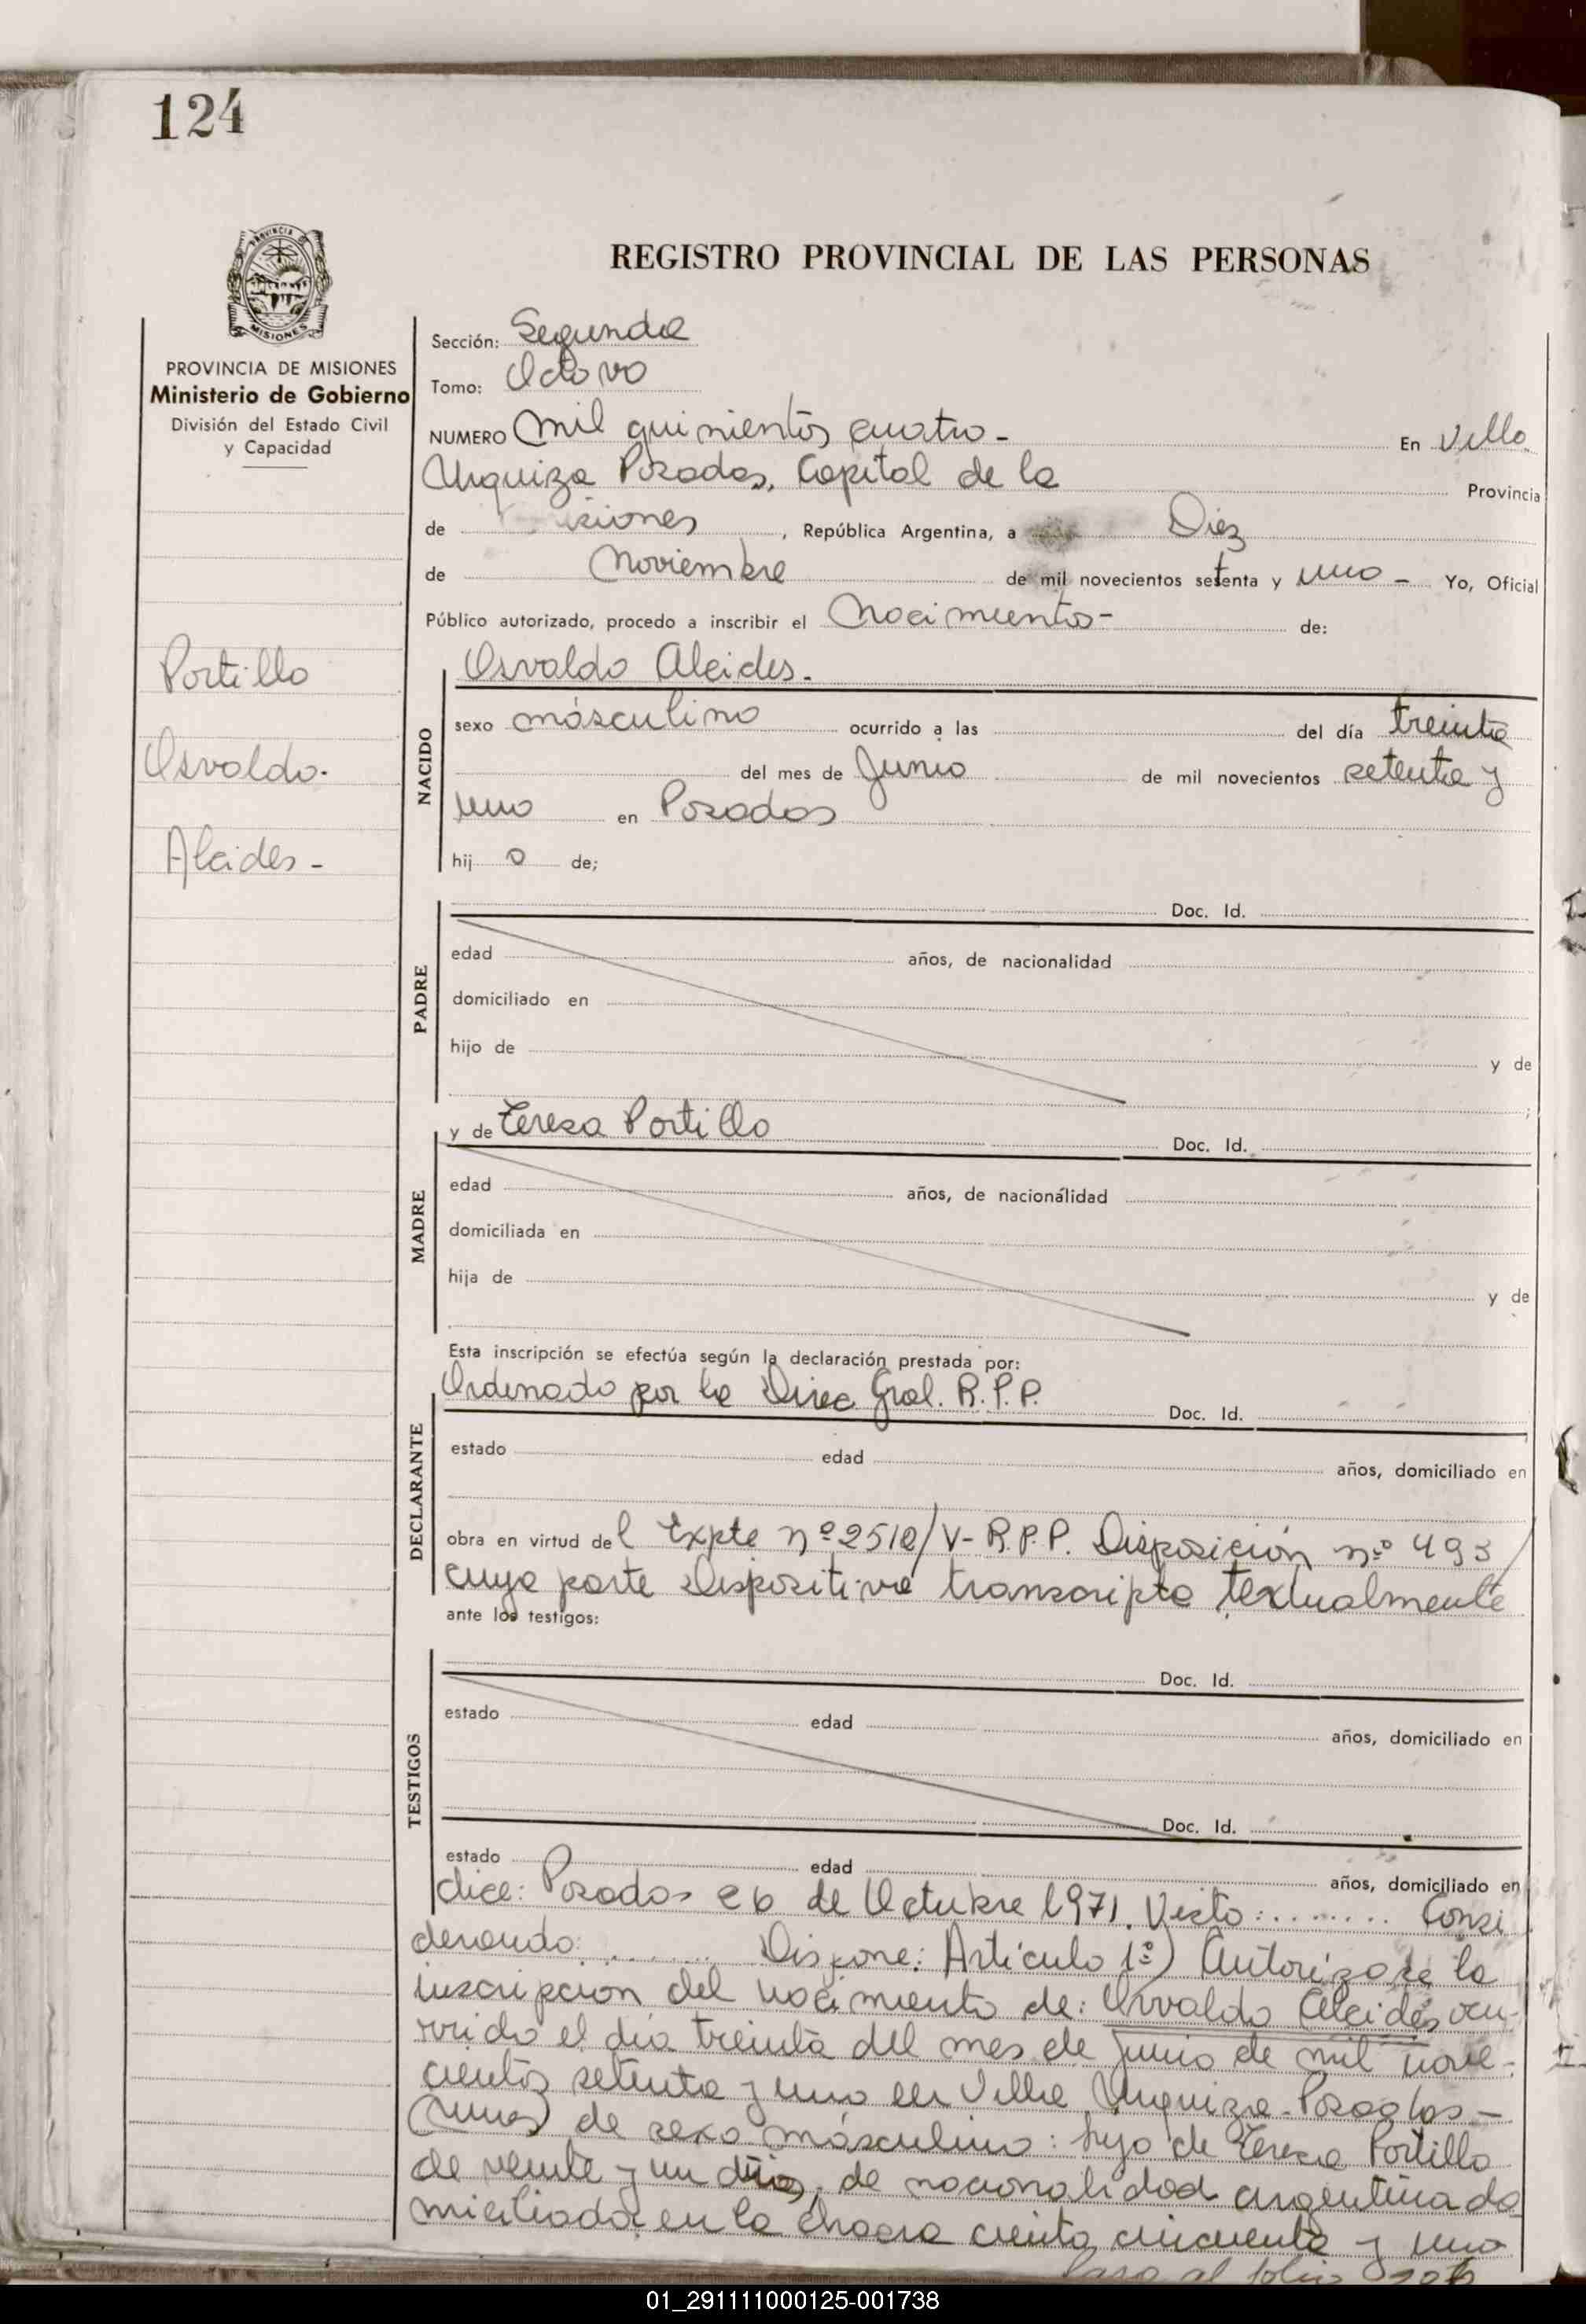 124
REGISTRO PROVINCIAL DE LAS PERSONAS
MISIONES
PROVINCIA DE MISIONES
Ministerio de Gobierno
División del Estado Civil
y Capacidad
Portillo
Osvaldo.
Alcides -
Sección: Segunda
Tomo: Octavo
NUMERO Mil quinientos cuatro - En Villa
Urquiza Posadas, Capital de la Provincia
de Misiones, República Argentina, a Diez
de Noviembre de mil novecientos setenta y uno - Yo, Oficial
Público autorizado, procedo a inscribir el Nacimiento - de:
NACIDO
Osvaldo Alcides.
sexo másculino ocurrido a las del día treinta
del mes de Junio de mil novecientos setenta y
uno en Posadas
hij o de;
PADRE
Doc. Id.
edad años, de nacionalidad
domiciliado en
hijo de y de
MADRE
y de Teresa Portillo Doc. Id.
edad años, de nacionálidad
domiciliada en
hija de y de
Esta inscripción se efectúa según la declaración prestada por:
DECLARANTE
Ordenado por la Direc Gral. R.P.P. Doc. Id.
estado edad años, domiciliado en
obra en virtud del Expte nº 2510/V- R.P.P. Disposición nº 493/
cuya parte Dispositiva transcripta textualmente
ante los testigos:
TESTIGOS
Doc. Id.
estado edad años, domiciliado en
Doc. Id.
estado edad años, domiciliado en
dice: Posadas 26 de Octubre 1971. Visto: ........ Consi
derando: ........ Dispone: Artículo 1º) Autorízase la
inscripcion del nacimiento de: Osvaldo Alcides ocu-
rrido el día treinta del mes de junio de mil nove-
cientos setenta y uno en Villa Urquiza - Posadas -
de sexo másculino: hijo de Teresa Portillo
de veinte y un de nacionalidad argentina do
miciliada en la chacra ciento cincuenta y uno
Pasa al folio
01_291111000125-001738